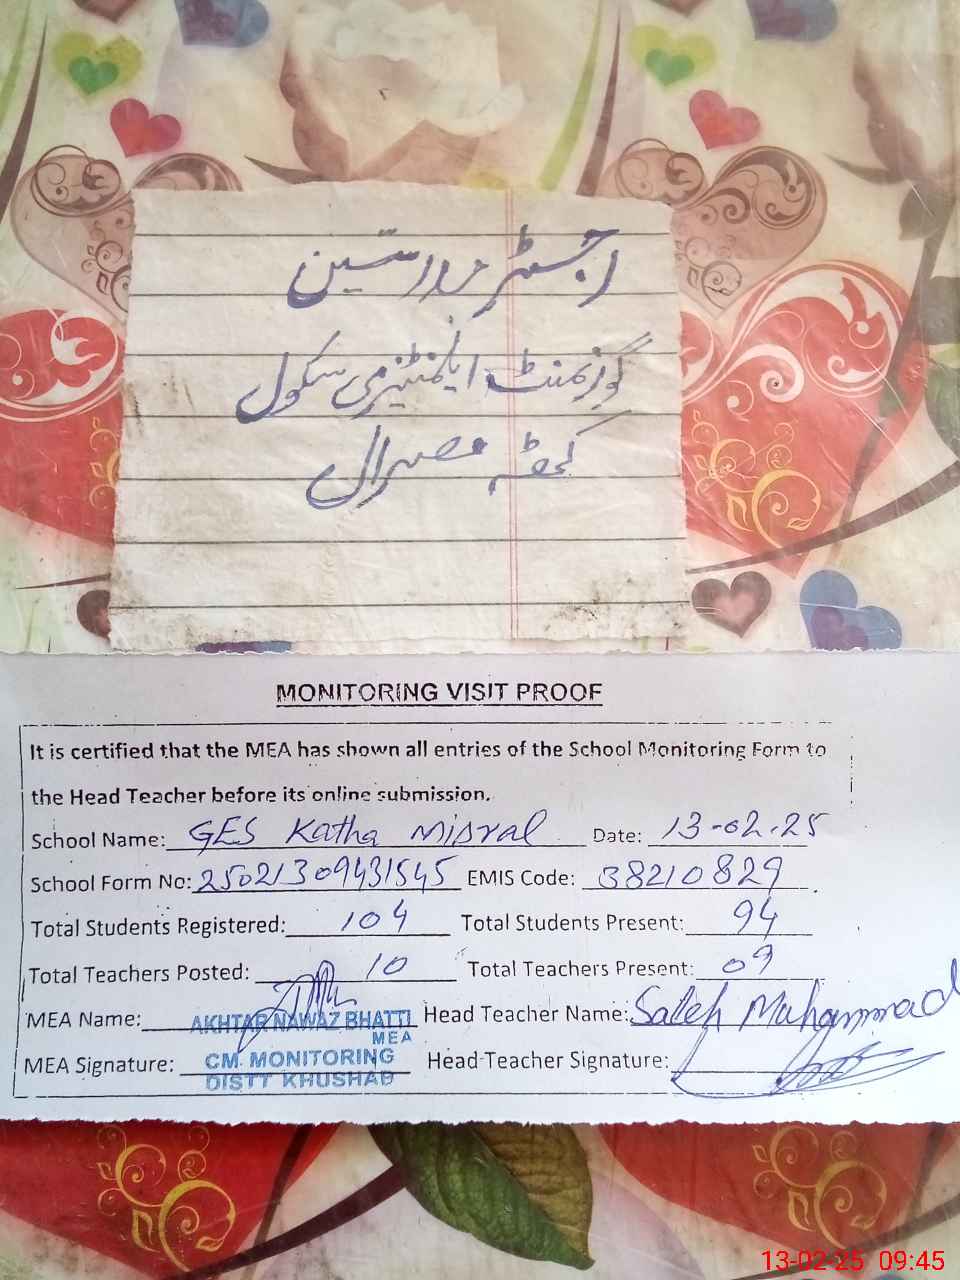 رجسٹر مدرسین
گورنمنٹ ایلمنٹری سکول
کٹھہ مصرال
MONITORING VISIT PROOF
It is certified that the MEA has shown all entries of the School Monitoring Form to
the Head Teacher before its online submission.
School Name: GES Katha Misral Date: 13-02-25
School Form No: 25021309431545 EMIS Code: 38210829
Total Students Registered: 104 Total Students Present: 94
Total Teachers Posted: 10 Total Teachers Present: 09
MEA Name: AKHTAR NAWAZ BHATTI Head Teacher Name: Saleh Muhammad
MEA
MEA Signature: CM. MONITORING Head Teacher Signature:
DISTT KHUSHAB
13-02-25 09:45